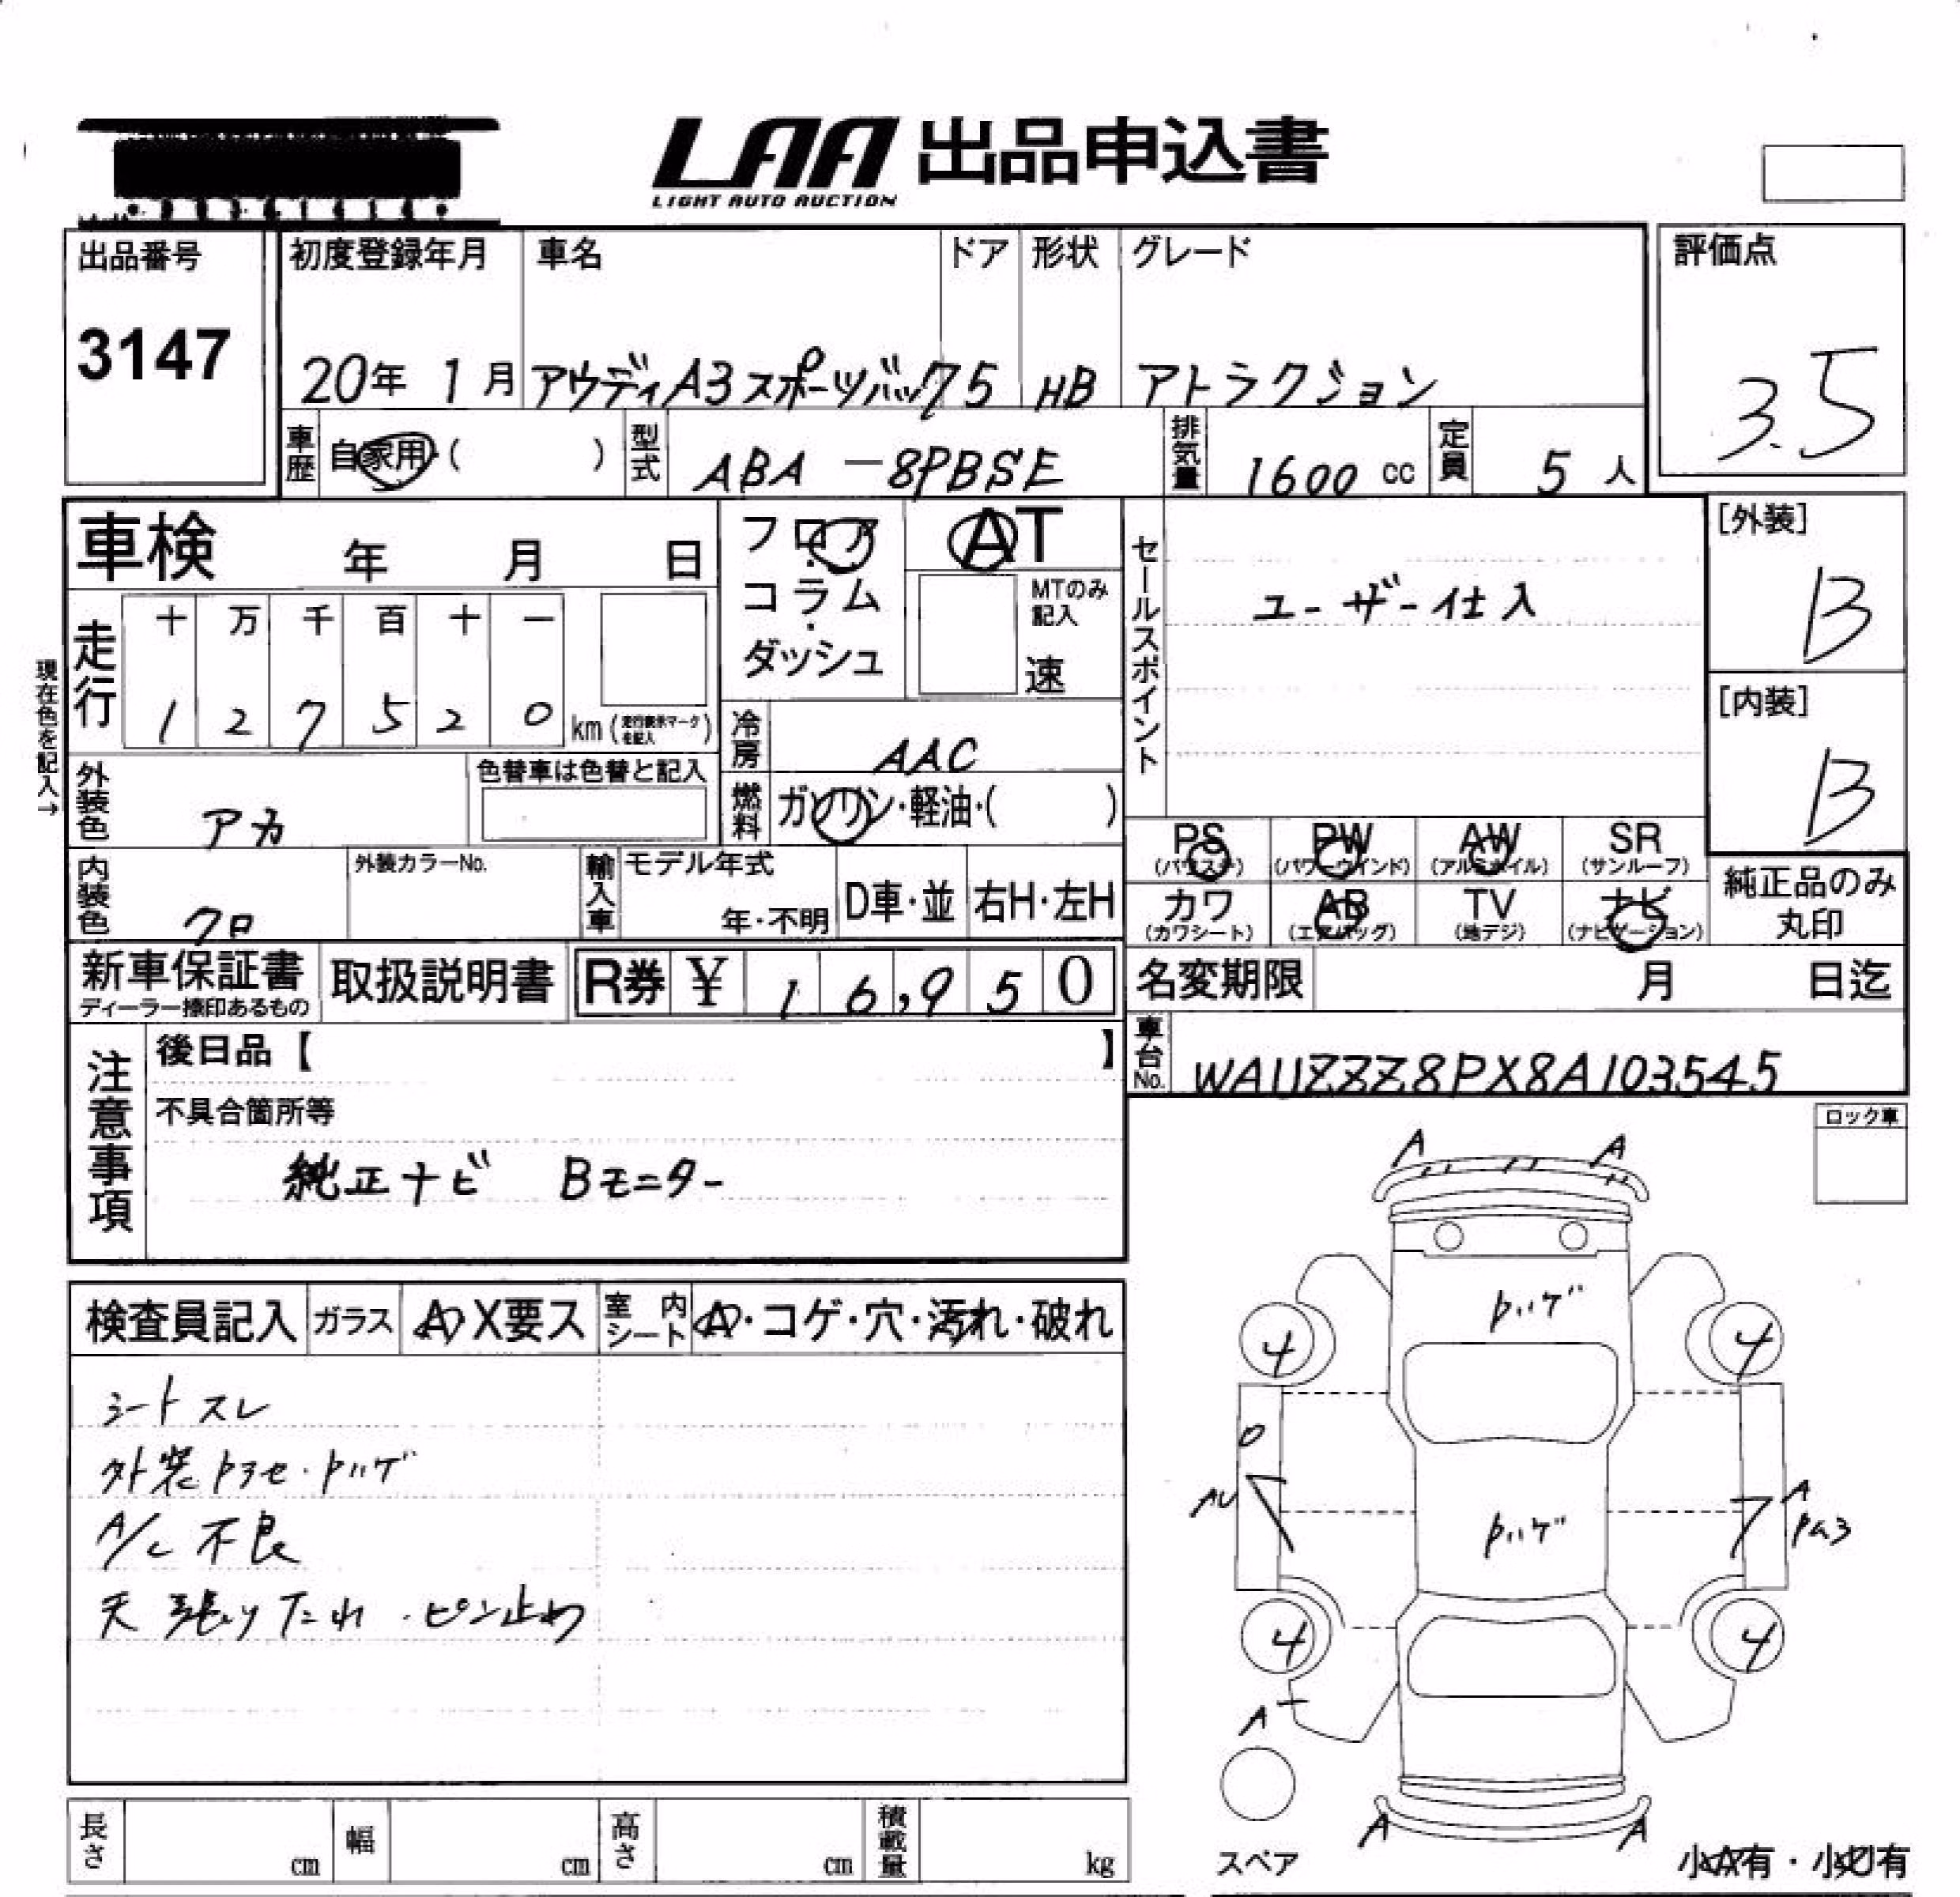 LAA 出品申込書
LIGHT AUTO AUCTION
出品番号
3147
初度登録年月 車名 ドア 形状 グレード
20年 1月 アウディA3スポーツバック 5 HB アトラクション
評価点
3.5
車歴 自家用・( ) 型式 ABA-8PBSE 排気量 1600 cc 定員 5 人
車検 年 月 日
フロア・コラム・ダッシュ
AT
MTのみ記入
速
セールスポイント
ユーザー仕入
[外装]
B
[内装]
B
現在色を記入→
走行 十 万 千 百 十 一
1 2 7 5 2 0 km (走行表示マークを記入)
冷房 AAC
外装色 アカ
色替車は色替と記入
燃料 ガソリン・軽油・( )
PS (パワステ) PW (パワーウインド) AW (アルミホイル) SR (サンルーフ)
カワ (カワシート) AB (エアバッグ) TV (地デジ) ナビ (ナビゲーション)
純正品のみ
丸印
内装色 クロ
外装カラーNo.
輸入車 モデル年式 年・不明 D車・並 右H・左H
新車保証書 取扱説明書 R券 ¥ 16,950
ディーラー捺印あるもの
名変期限 月 日迄
車台No. WAUZZZ8PX8A103545
注意事項
後日品【 】
不具合箇所等
純正ナビ Bモニター
ロック車
検査員記入 ガラス A X要ス 室内シート A・コゲ・穴・汚れ・破れ
シートスレ
外装トヨセ・トハゲ
A/C 不良
天張りたれ・ピン止め
A A
トハゲ
4 4
AU
A
トハゲ
4 4
A
スペア
A A
小A有・小U有
長さ cm 幅 cm 高さ cm 積載量 kg